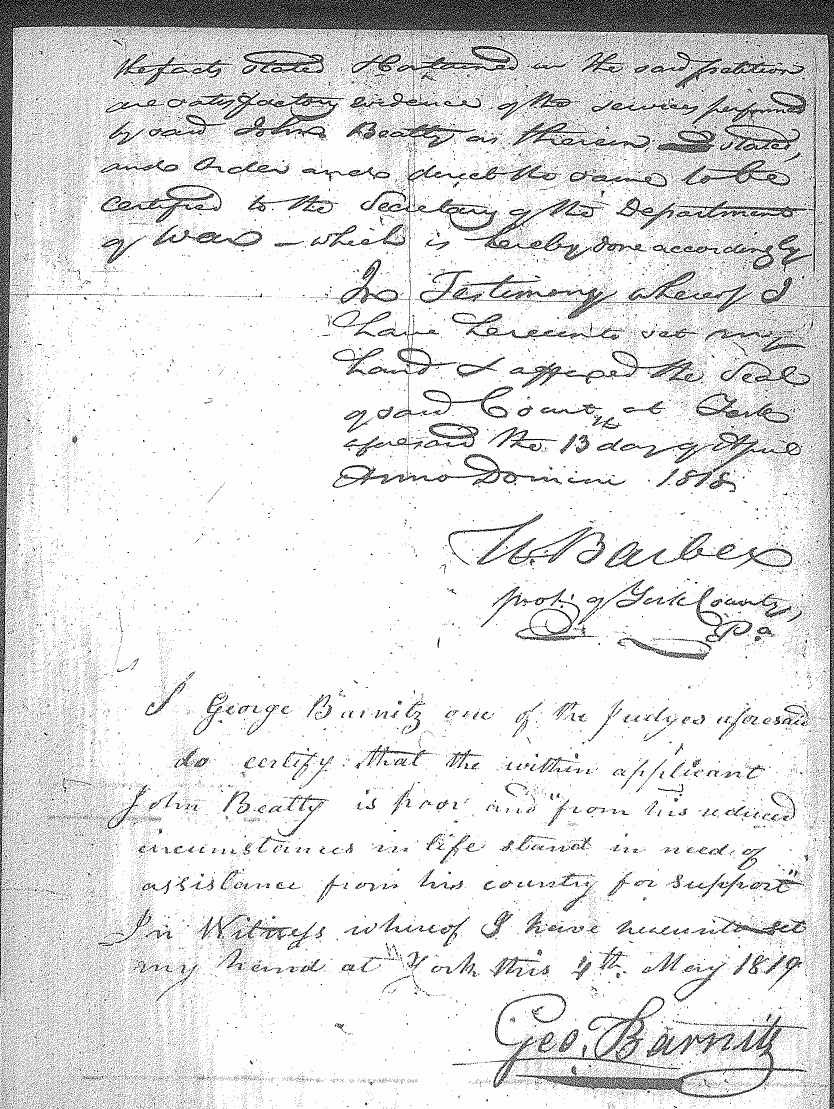 the facts stated & contained in the said petition
are satisfactory evidence of the services performed
by said John Beatty as therein stated,
and order and direct the same to be
certified to the Secretary of the Department
of War – which is hereby done accordingly
In Testimony whereof I
have hereunto set my
hand & affixed the Seal
of said Court, at York
aforesaid the 13th day of April
Anno Domini 1818
W. Barber
prot: of York County,
Pa
I George Barnitz one of the Judges aforesaid
do certify that the within applicant
John Beatty is poor and "from his reduced
circumstances in life stand in need of
assistance from his country for support"
In Witness whereof I have hereunto set
my hand at York this 4th May 1819
Geo. Barnitz